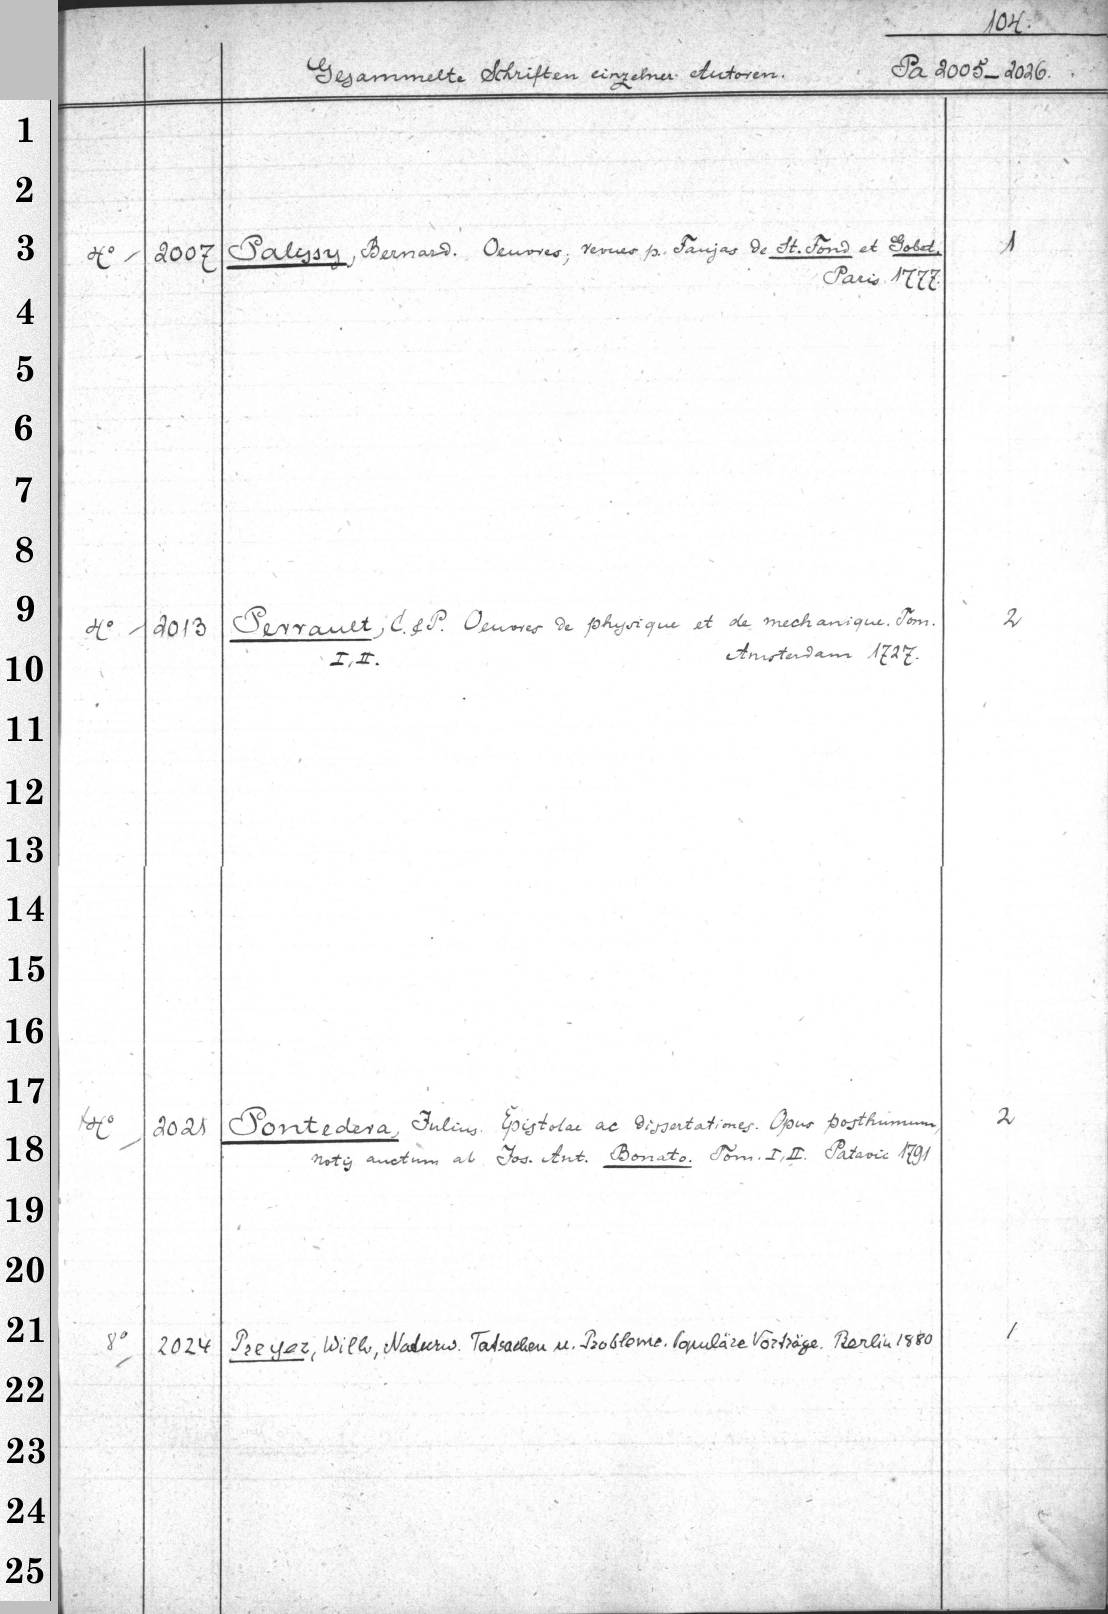 104.
Gesammelte Schriften einzelner Autoren. Pa 2005-2026.
1
2
3 4° 2007 Palissy, Bernard. Oeuvres, revues p. Faujas de St. Fond et Gobet. 1
Paris 1777.
4
5
6
7
8
9 4° 2013 Perrault, C. & P. Oeuvres de physique et de mechanique. Tom. 2
10 I, II. Amsterdam 1727.
11
12
13
14
15
16
17
4° 2021 Pontedera, Julius. Epistolae ac dissertationes. Opus posthumum, 2
18 notis auctum ab Jos. Ant. Bonato. Tom. I, II. Patavii 1791
19
20
21 8° 2024 Preyer, Wilh., Naturw. Tatsachen u. Probleme. Populäre Vorträge. Berlin 1880 1
22
23
24
25